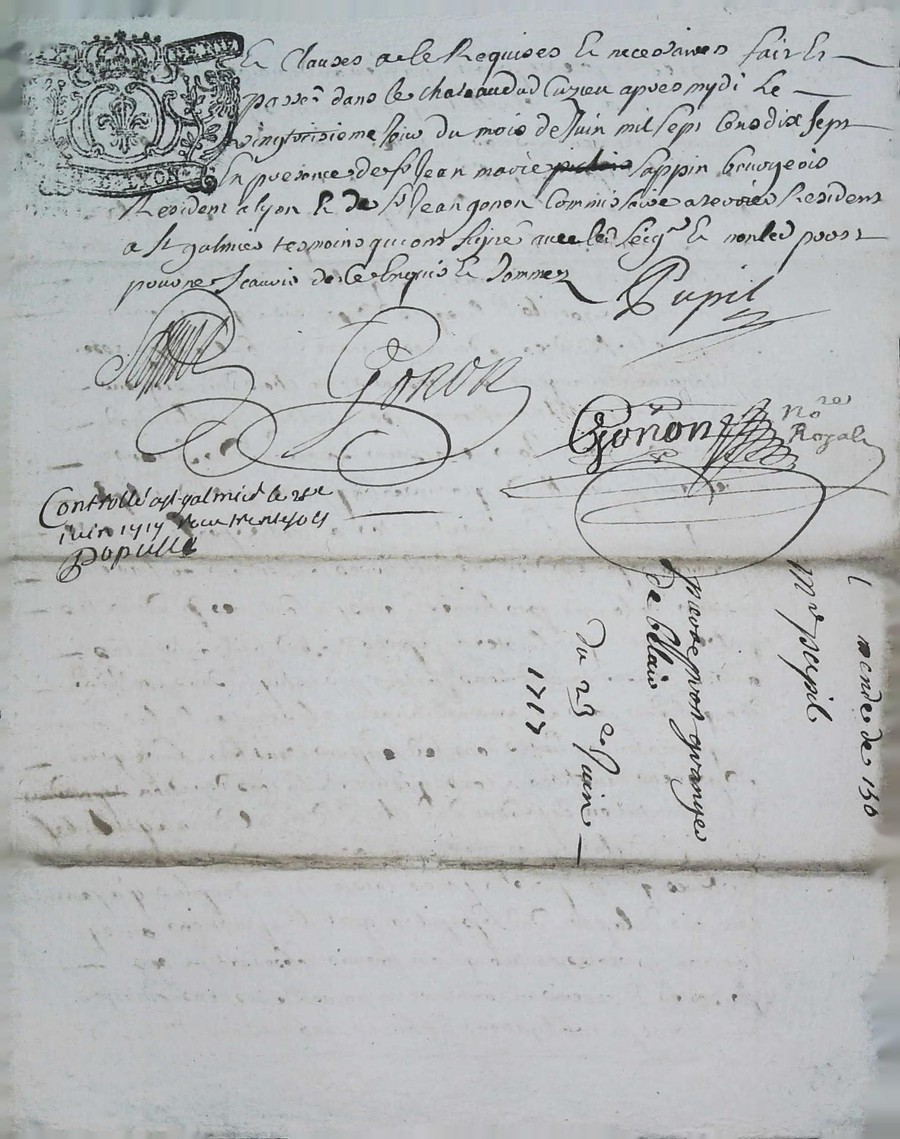 Et Clauses a ce Requises Et necessaires fait Et
passé dans le chateau dud Cuzieu apres mydi Le
vingtroisieme Jour du mois de Juin mil sept Cens dix sept
En presence de sr Jean marie Sappin bourgeois
Resident a lyon Et de sr Jean gonon Commissaire a terriers Resident
a st galmier tesmoins qui ont signé avec led et non led
pour ne scavoir de ce Enquis Et Sommez
Pupil
Gonon
Gonon nore
Royal
Controllé a st galmier le
juin 1717
Populle
DE LYON
de 150
Mr pupil
granges
du 23e Juin
1717